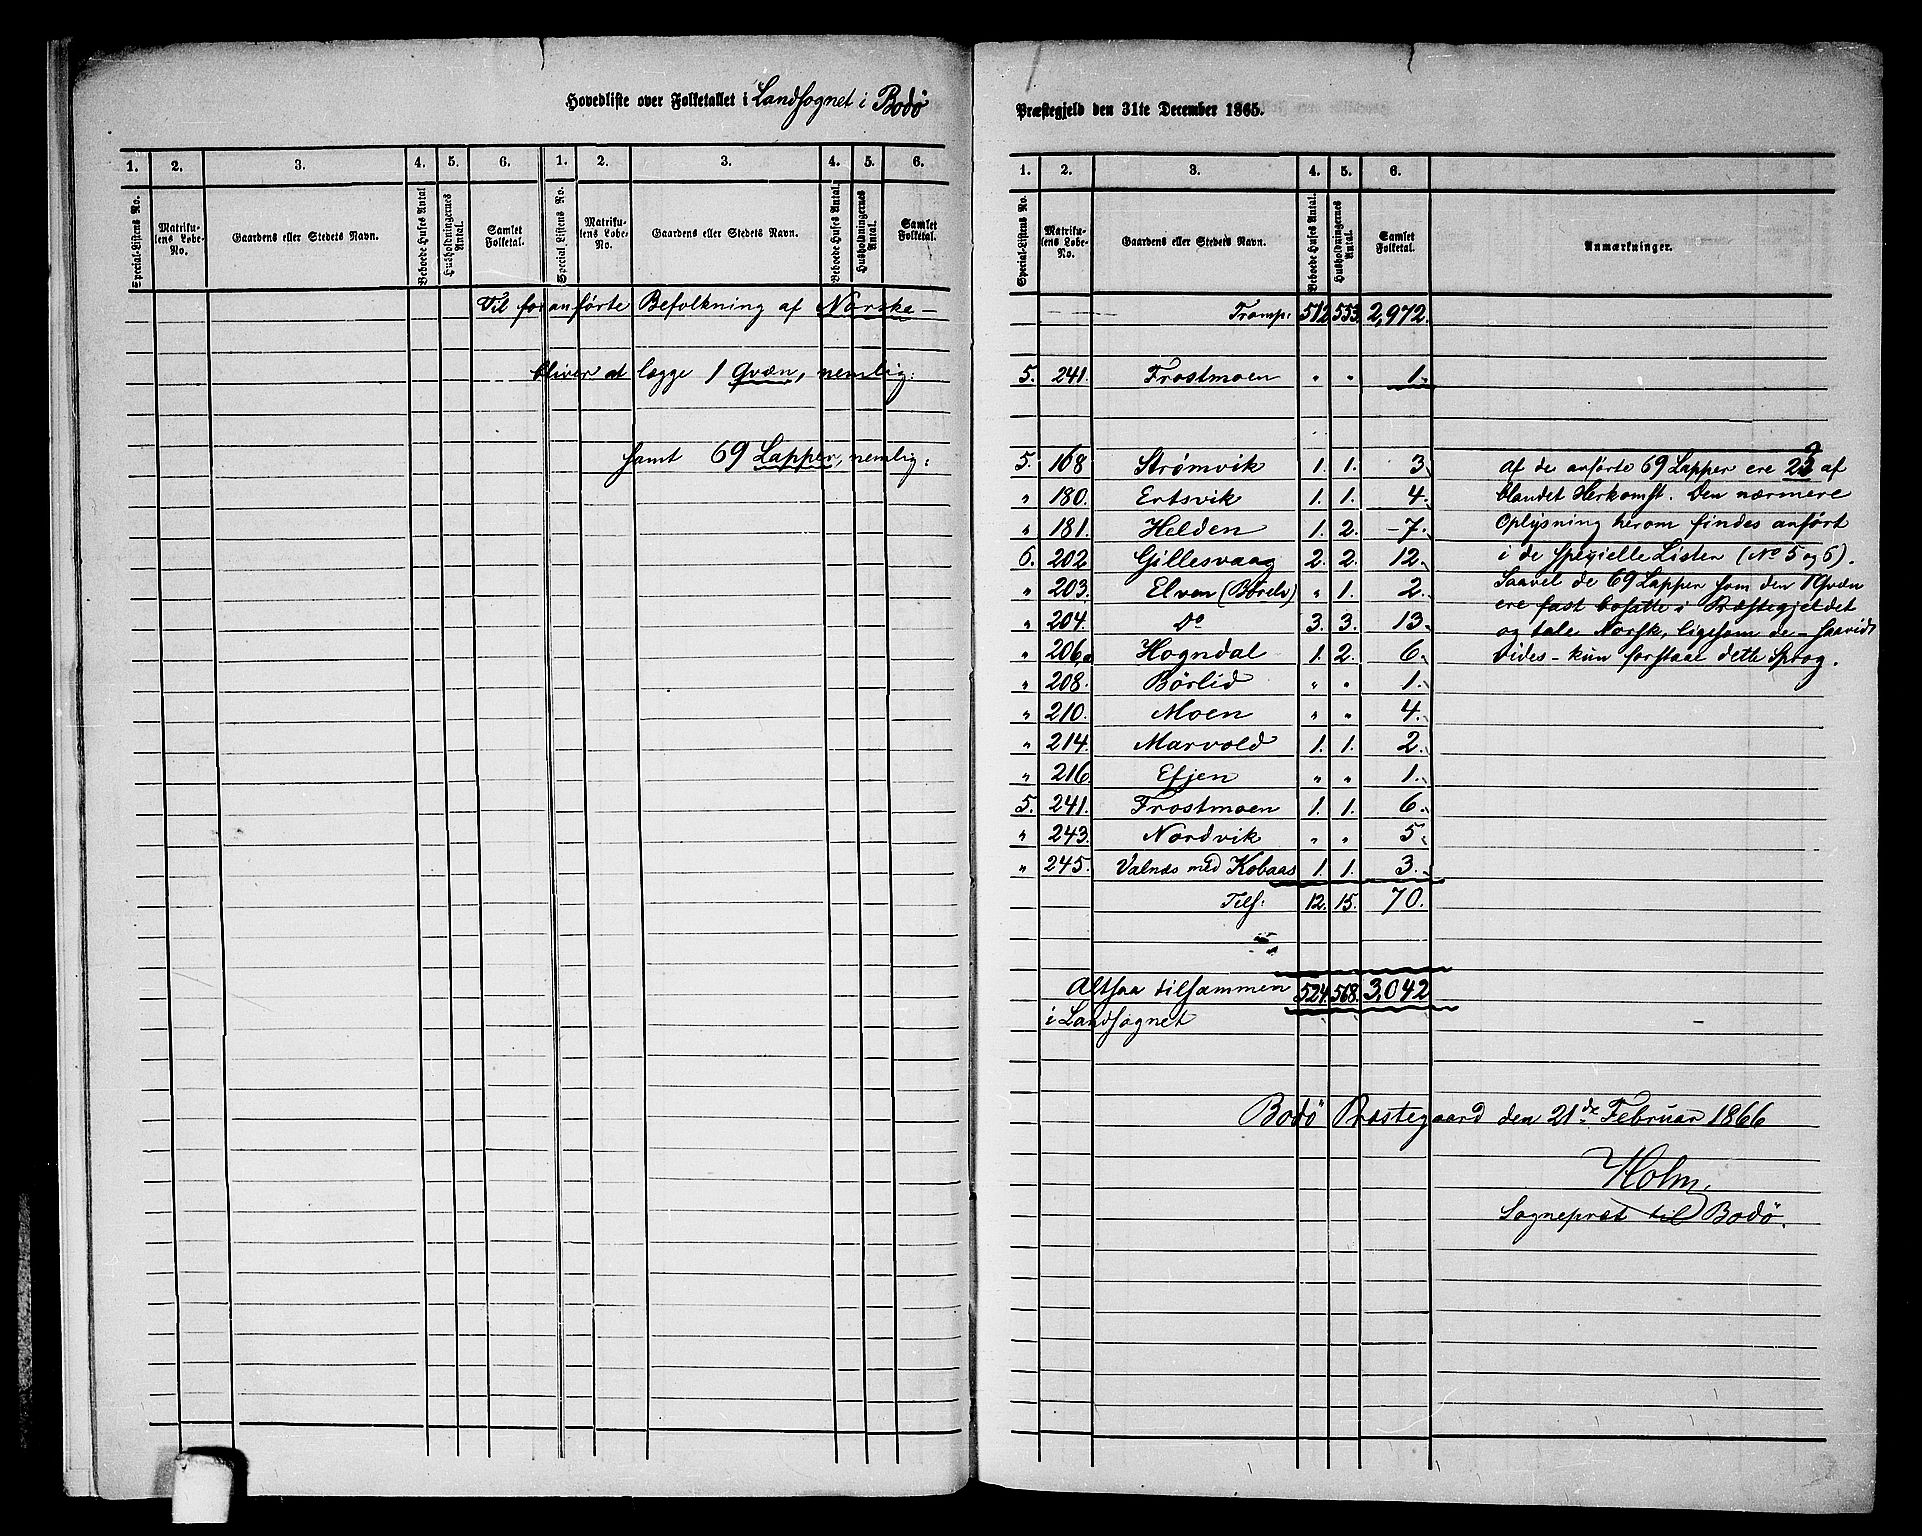 Hovedliste over Folketallet i Landsognet i Bodö
Præstegjeld den 31te December 1865.
1. 2. 3. 4. 5. 6. 1. 2. 3. 4. 5. 6.
Special-Listens No. Matrikulens Løbe-No. Gaardens eller Stedets Navn. Beboede Huses Antal Husholdningernes Antal. Samlet Folketal. Special-Listens No. Matrikulens Løbe-No. Gaardens eller Stedets Navn. Beboede Huses Antal. Husholdningernes Antal. Samlet Folketal.
Til foranførte Befolkning af Norske –
bliver at lægge 1 Qvæn, nemlig:
samt 69 Lapper, nemlig:
1. 2. 3. 4. 5. 6.
Special-Listens No. Matrikulens Løbe-No. Gaardens eller Stedets Navn. Beboede Huses Antal. Husholdningernes Antal. Samlet Folketal. Anmærkninger.
Transp: 512 553 2,972.
5. 241. Frostmoen " " 1.
5. 168 Strømvik 1. 1. 3.
" 180. Ertsvik 1. 1. 4.
" 181. Helden 1. 2. 7.
6. 202 Gillesvaag 2. 2. 12.
" 203. Elven (Børelv) " 1. 2.
" 204. Do 3. 3. 13.
" 206a Hogndal 1. 2. 6.
" 208. Børlid " " 1.
" 210. Moen " " 4.
" 214. Marvold 1. 1. 2.
" 216. Efjen " " 1.
5. 241. Frostmoen 1. 1. 6.
" 243. Nordvik " " 5.
" 245. Valnæs med Kobaas 1. 1. 3.
Tils: 12. 15. 70.
Altsaa tilsammen 524. 568. 3,042
i Landsognet
Af de anførte 69 Lapper ere af
blandet Herkomst. Den nærmere
Oplysning herom findes anført
i de specielle Lister (No 5 og 6).
Saavel de 69 Lapper som den 1 Qvæn
ere fast bosatte i Præstegjeldet
og tale Norsk, ligesom de – saavidt
vides – kun forstaae dette Sprog.
Bodö Præstegaard den 21de Februar 1866
Holm,
Sognepræst til Bodö.